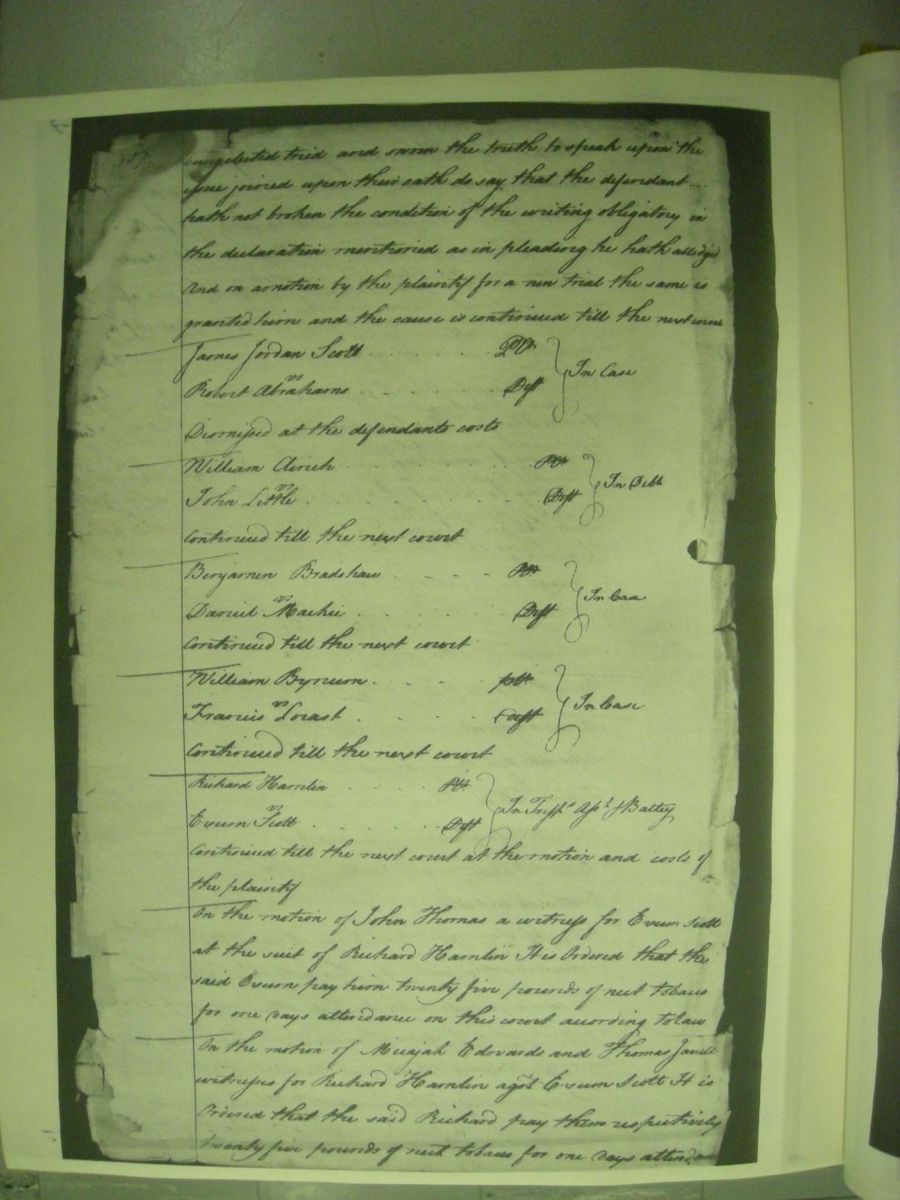 tried and sworn the truth to speak upon the
issue joined upon their oath do say, that the defendant
hath not broken the condition of the writing obligatory in
the declaration mentioned as in pleading he hath alledged
And on a motion by the plaintif for a new trial the same is
granted him and the cause is continued till the next court
James Jordan Scott Plt
vs In Case
Robert Abrahams Deft
Dismissed at the defendants costs
William Plt
vs In Debt
John Little Deft
Continued till the next court
Benjamin Bradshaw Plt
vs In Case
Daniel Mackie Deft
Continued till the next court
William Bynum plt
vs In Case
Francis Locast Deft
Continued till the next court
Richard Hamlin Plt
vs In Tresps Asst & Battry
Exum Scott Deft
Continued till the next court at the motion and costs of
the plaintif
On the motion of John Thomas a witness for Exum Scott
at the suit of Richard Hamlin It is Ordered that the
said Exum pay him twenty five pounds of nett tobacco
for one days attendance on this court according to law
On the motion of Micajah Edwards and Thomas
witnesses for Richard Hamlin agst Exum Scott It is
Ordered that the said Richard pay them respectively
twenty five pounds of nett tobacco for one days